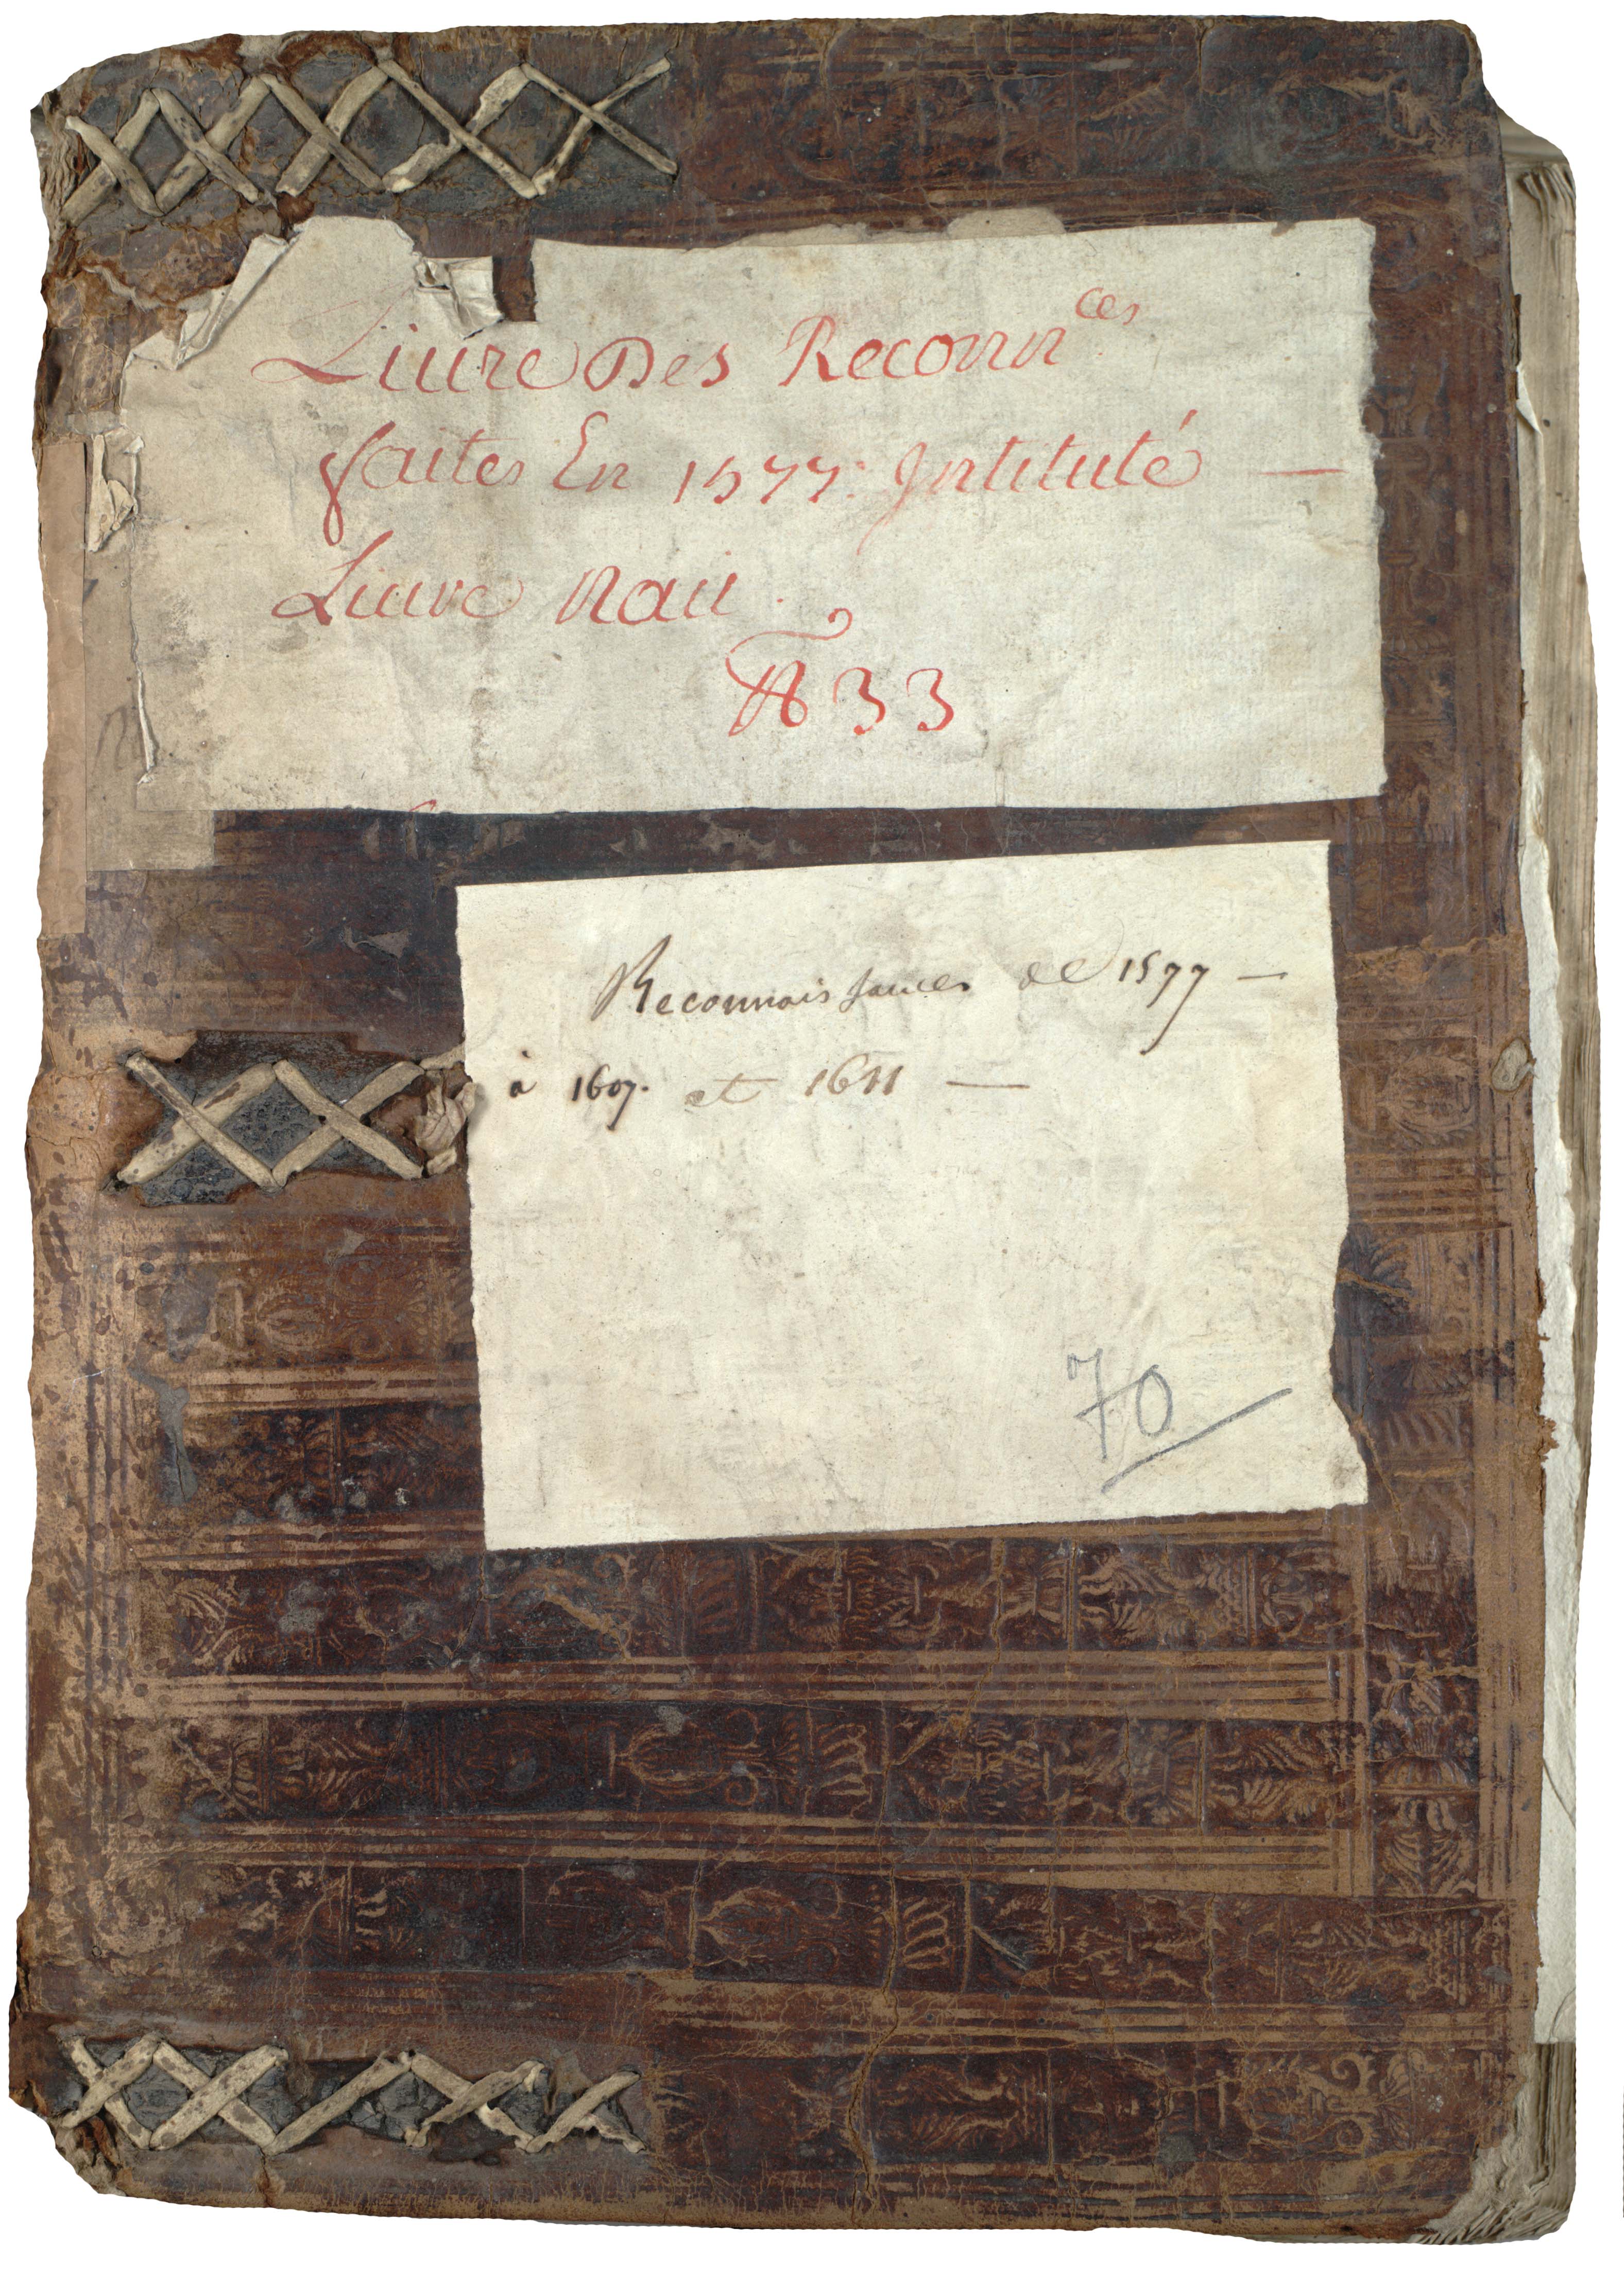 Liure Des Reconn.ces
faites En 1577. Jntitulé —
Liure Nau.
N 33
Reconnoissances de 1577 —
à 1607. et 1611 —
70